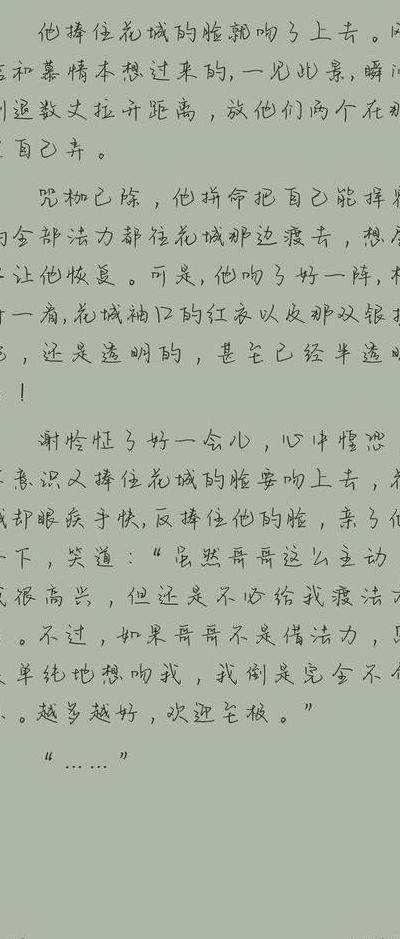 他捧住花城的脸就吻了上去。
和慕情本想过来的,一见此景,瞬
退数丈拉开距离,放他们两个在那
自己弄。
咒枷已除,他拼命把自己能挥
全部法力都往花城那边渡去,想
让他恢复。可是,他吻了好一阵,
一看,花城袖口的红衣以及那双银
,还是透明的,甚至已经半透
!
谢怜怔了好一会儿,心中惶恐
意识又捧住花城的脸要吻上去,
却眼疾手快,反捧住他的脸,亲了
下,笑道:“虽然哥哥这么主动
很高兴,但还是不必给我渡法
。不过,如果哥哥不是借法力,
单纯地想吻我,我倒是完全不
。越多越好,欢迎至极。”
“……”